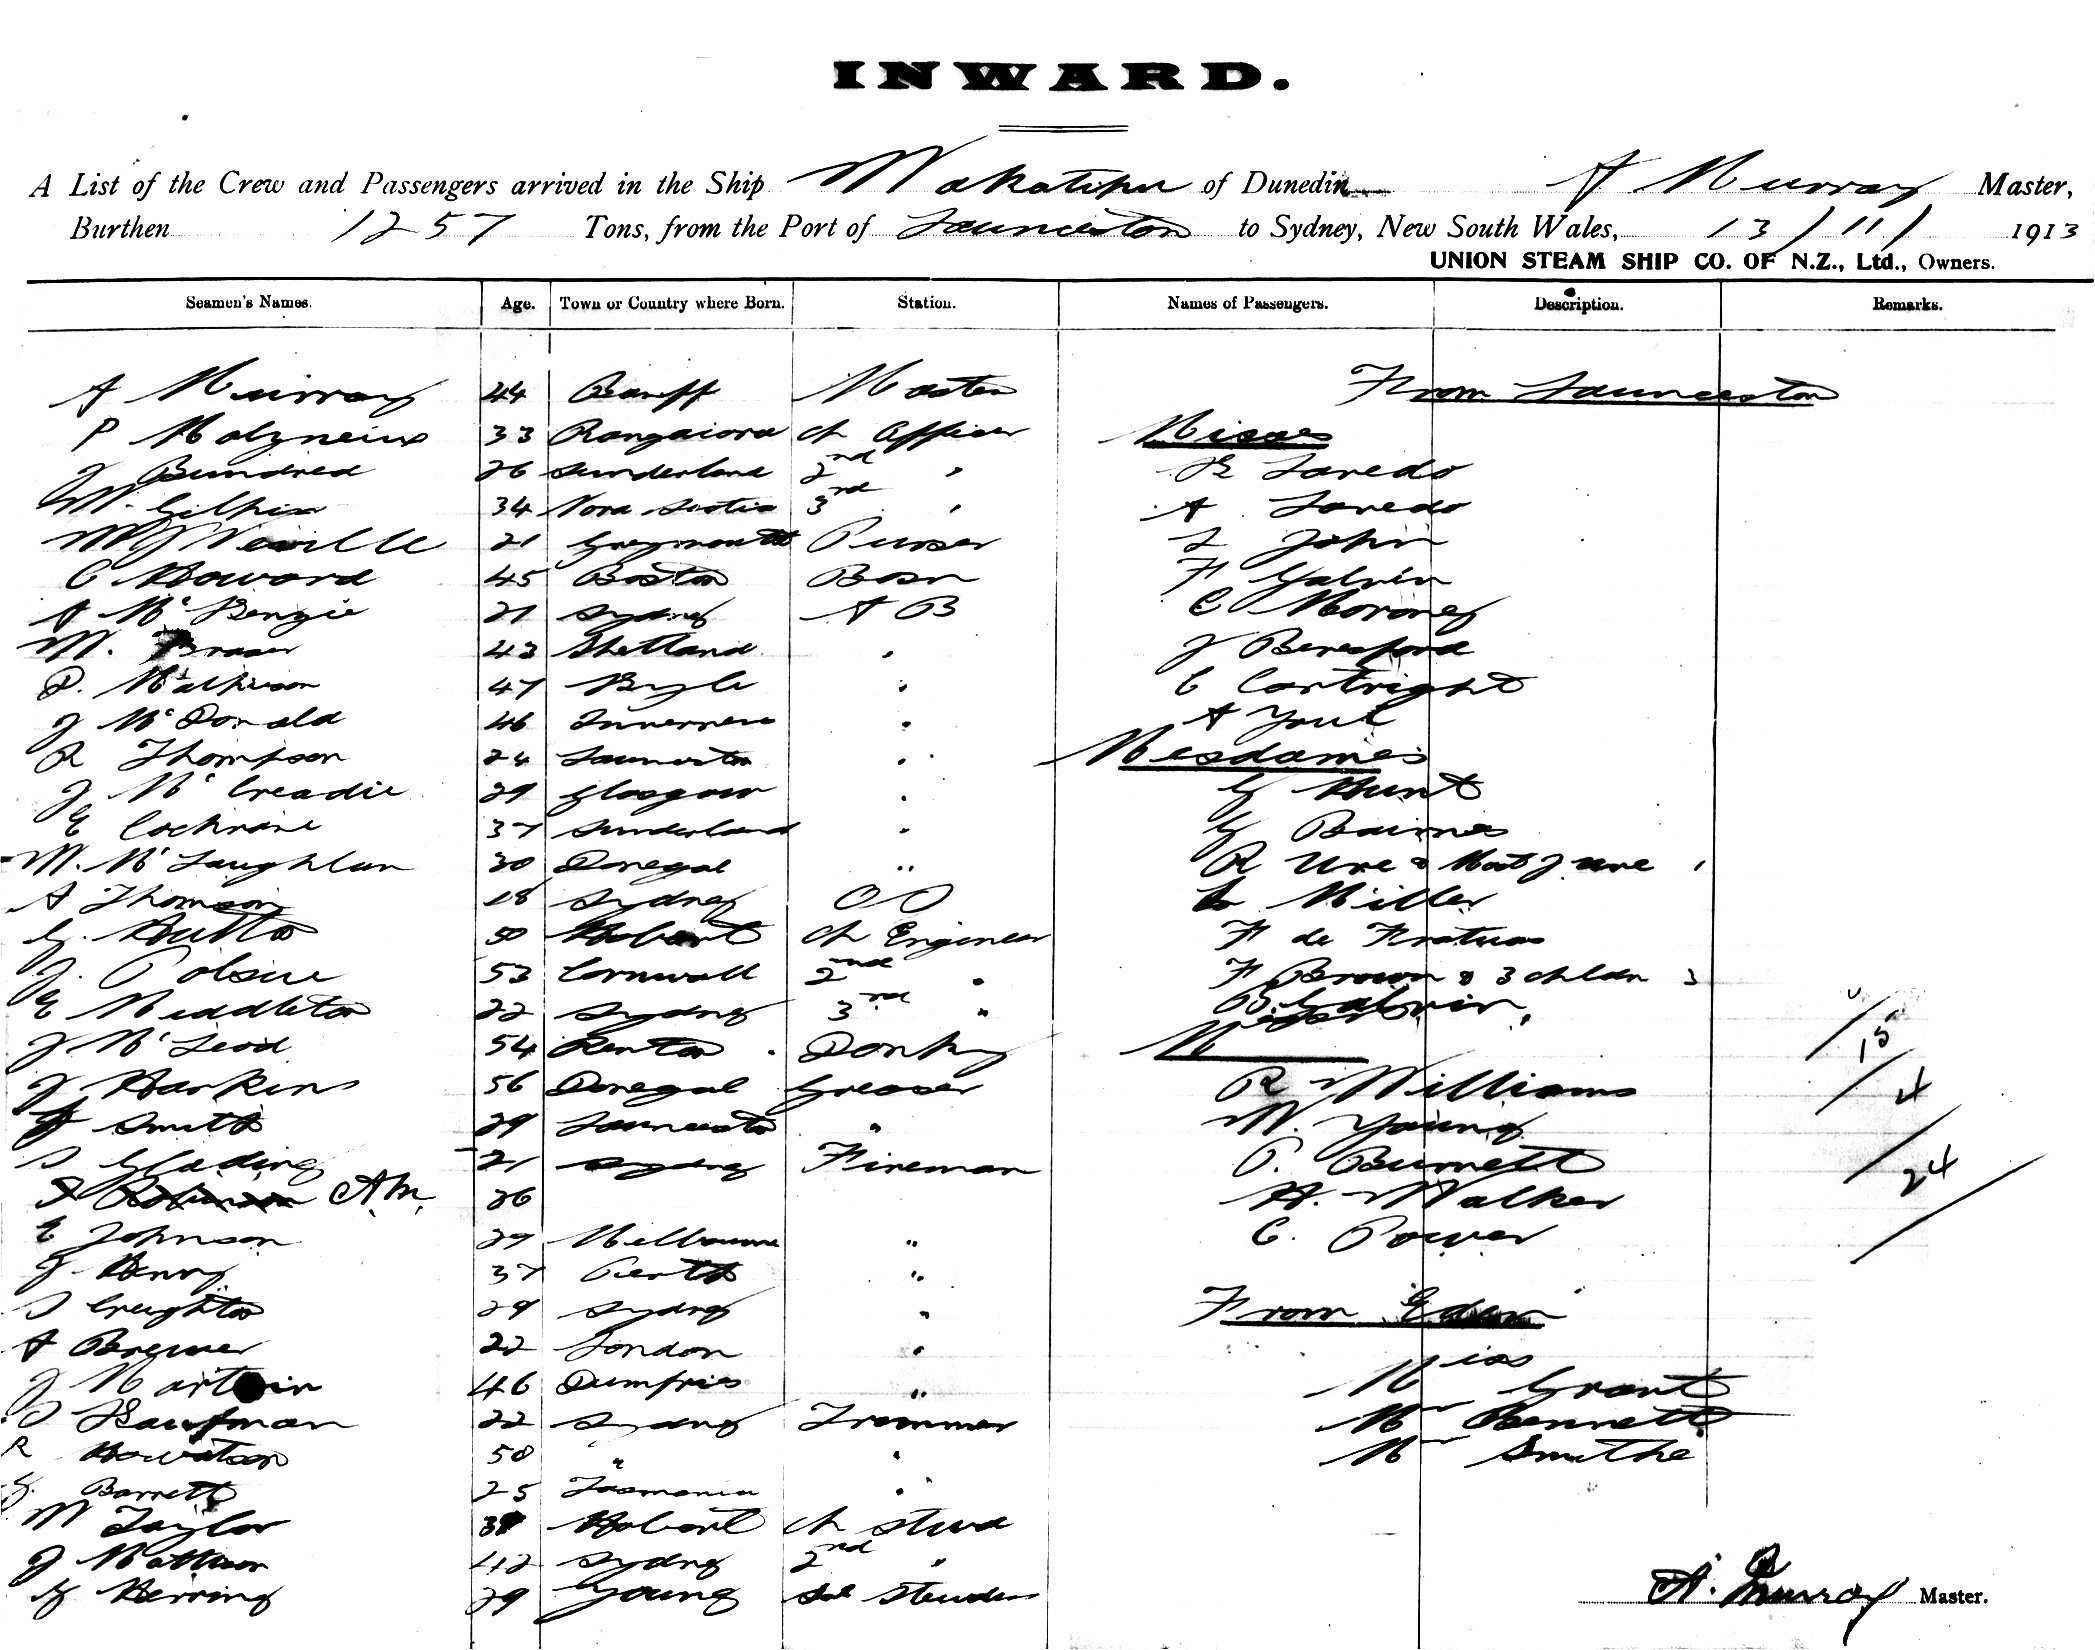 INWARD.
A List of the Crew and Passengers arrived in the Ship Wakatipu of Dunedin A Murray Master,
Burthen 1257 Tons, from the Port of Launceston to Sydney, New South Wales, 13/11/1913
UNION STEAM SHIP CO. OF N.Z., Ltd., Owners.
Seamen's Names. Age. Town or Country where Born. Station. Names of Passengers. Description. Remarks.
A Murray 44 Banff Master From Launceston
P Molyneiux 33 Rangaiora Ch Officer Misses
J Bundred 26 Sunderland 2nd " R Laredo
W. Gilkin 34 Nova Scotia 3rd " A Laredo
W J Neville 21 Greymouth Purser L John
C Howard 45 Boston Bosn F Galvin
A McKenzie 21 Sydney A B C Moroney
W. Fraser 43 Shetland " J Beresford
D. Mathieson 47 Kyle " C Cartright
J McDonald 46 Inverness " A Youl
R Thompson 24 Launceston " Mesdames
J McCreadie 29 Glasgow " G Hunt
E Cochrane 37 Sunderland " G Bairnes
W. McLaughlan 30 Donegal " R Ure & Mast J Ure 1
A Thomson 18 Sydney O O Miller
G. Hutton 50 Hobart Ch Engineer F de
J. Polsue 53 Cornwall 2nd " F Brown & 3 chldn 3
E Middleton 22 Sydney 3rd " B. Galvin
J McLeod 54 Renton Donky 15
J Harkins 56 Donegal Greaser R Williams 4
Smith 29 Launceston " W. Young
S Glading 21 Sydney Fireman P. Burnett 24
Robinson A.M. 26 H. Walker
E Johnson 29 Melbourne " C. Power
J Henry 37 Perth "
S Creighton 29 Sydney " From Eden
A Brewer 22 London " Miss
J Martin 46 Dumfries " Grant
S Kaufman 22 Sydney Trimmer Mr Bennett
R Howatson 50 " " Mr Smithe
G. Barrett 25 Tasmania "
W Taylor Hobart Ch Stwd
J Mathieson 42 Sydney 2nd "
G Herring 29 Young Sal Stewdess
A. Murray Master.